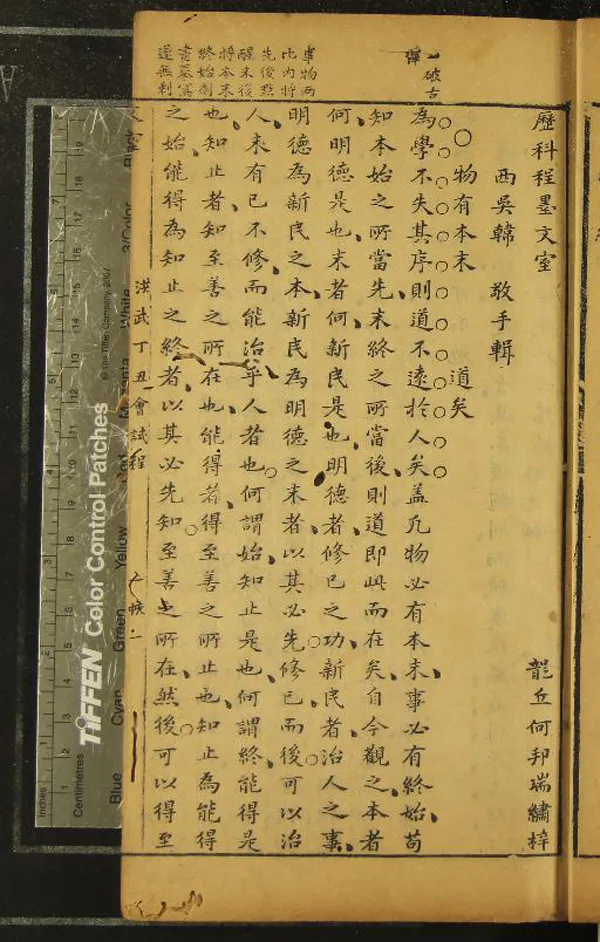 歷科程墨文室
西吳韓　敬手輯　龍丘何邦瑞繡梓
物有本末　道矣
為學不失其序則道不遠於人矣盖凡物必有本末事必有終始苟
知本始之所當先末終之所當後則道即此而在矣自今觀之本者
何明德是也末者何新民是也明德者修己之功新民者治人之事
明德為新民之本新民為明德之末者以其必先修己而後可以治
人未有己不修而能治乎人者也何謂始知止是也何謂終能得是
也知止者知至善之所在也能得者得至善之所止也知止為能得
之始能得為知止之終者以其必先知至善之所在然後可以得至
一破古
事物两
比内將
先後點
醒末後
將本末
終始
文室
洪武丁丑會試程
TIFFEN Color Control Patches
© The Tiffen Company, 2007
Blue
Cyan
Green
Yellow
Red
Magenta
White
3/Color
Black
Inches
Centimetres